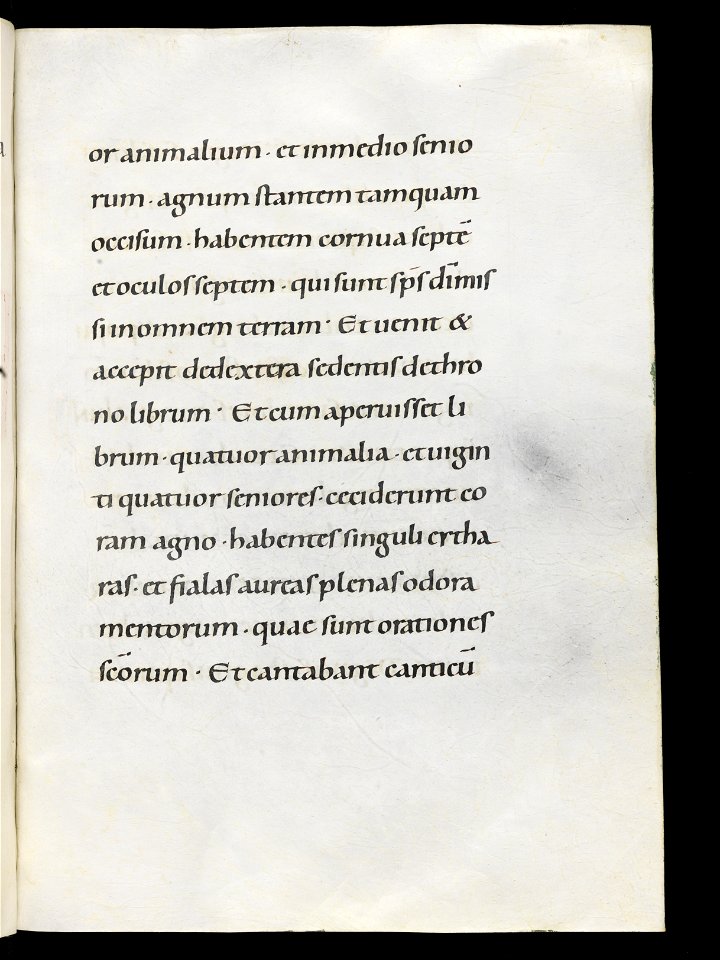 or animalium · et inmedio senio
rum · agnum stantem tamquam
occisum · habentem cornua septē
et oculos septem · qui sunt sp̄s dī mis
si in omnem terram · Et uenit &
accepit dedextera sedentis dethro
no librum · Et cum aperuisset li
brum · quatuor animalia · et uigin
ti quatuor seniores · ceciderunt co
ram agno · habentes singuli cytha
ras · et fialas aureas plenas odora
mentorum · quae sunt orationes
scōrum · Et cantabant canticū